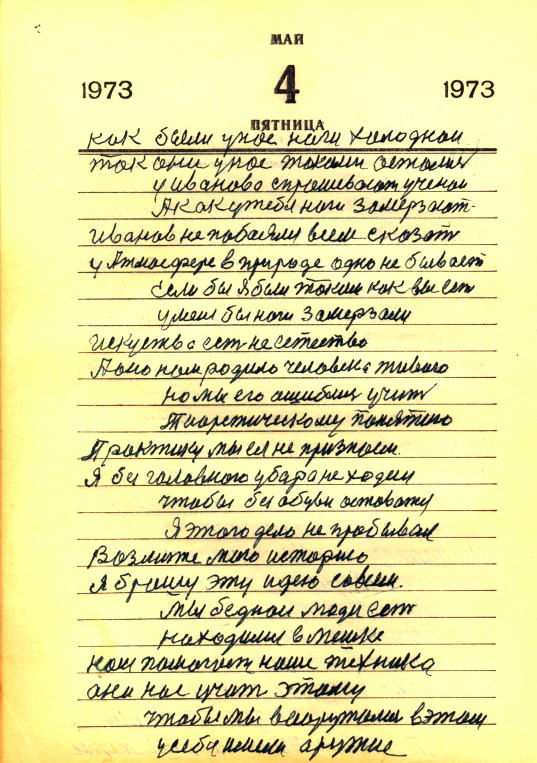 МАЙ
1973 4 1973
ПЯТНИЦА
как были у нас ноги холодной
так они у нас такими остались
у иванова спрашивают ученои
А как у тебя ноги замерзают
Иванов не побаялся всем сказать
у Атмосфере в природе одно не бывает
Если бы я был таким как вы есть
у меня бы ноги замерзали
искуство есть не естество
Лоно нам родило человека живого
но мы его ошиблись учить
Тиоретическому понятию
Практику мы ея не признаем.
Я без головного убора не ходил
чтобы без обуви остоватся
Я этого дело не пробывал
Возмите мого историю
Я брошу эту идею совсем.
Мы бедной люди есть
находимся в мешке
нам помогает наше техника
она нас учит этому
чтобы мы ваоружались в этом
у себя имели аружие